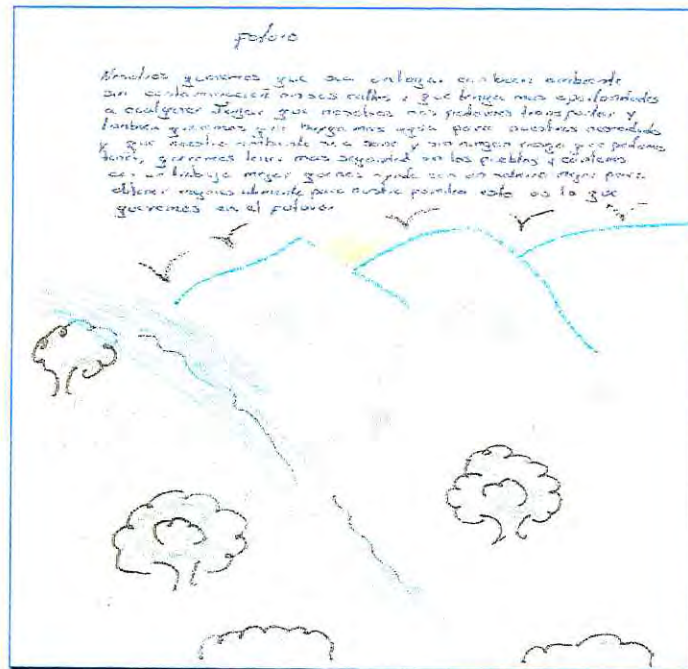 Fotoro
Nosotros queremos que sea un lugar con buen ambiente
sin contaminación calles, que tenga mas oportunidades
a cualquier lugar que nosotros nos podamos transportar y
tambien queremos que tenga mas agua para nuestras necesidades
y que nuestro ambiente sea sano y sin ningun riesgo que podamos
tener, queremos tener mas seguridad en los pueblos y
con un trabajo mejor nos ayude con un mejor para
obtener alimento para nuestra familia esto es lo que
queremos en el fotoro.